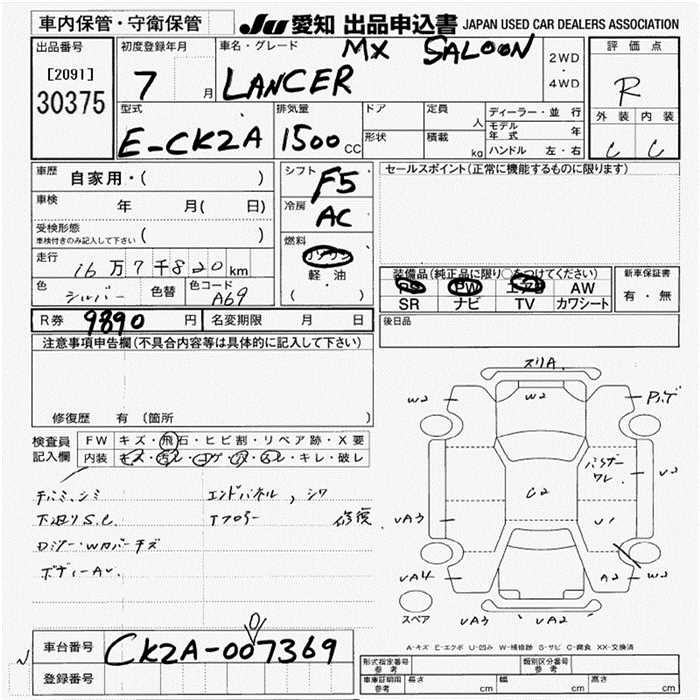 車内保管・守衛保管 JU 愛知 出品申込書 JAPAN USED CAR DEALERS ASSOCIATION
出品番号 [2091] 30375
初度登録年月 7 月
車名・グレード MX SALOON
LANCER
2WD・4WD
評価点 R
外装 C 内装 C
型式 E-CK2A
排気量 1500 CC
ドア 形状
定員 人 積載 kg
ディーラー・並行
モデル年式 年
ハンドル 左・右
車歴 自家用・( )
車検 年 月( 日)
受検形態 車検付きのみ記入して下さい ( )
走行 16万7千820km
色 シルバー 色替 色コード A69
シフト F5
冷房 AC
燃料 ガソリン
軽油
( )
セールスポイント(正常に機能するものに限ります)
装備品(純正品に限り○をつけてください)
PS PW エアB AW
SR ナビ TV カワシート
新車保証書
有・無
R券 9890 円 名変期限 月 日
後日品
注意事項申告欄(不具合内容等は具体的に記入して下さい)
修復歴 有 〔箇所 〕
検査員記入欄
FW キズ・飛石・ヒビ割・リペア跡・X要
内装 キズ・汚レ・コゲ・穴・スレ・キレ・破レ
エンドパネル、シワ
下廻りS.C.
Tフロアー 修復
ボディーAU.
スリA
W2 W2 Pハゲ
C2 U2
UA3 U1
UA4 A2 W2
スペア UA3 UA2
A-キズ E-エクボ U-凹み W-補修跡 S-サビ C-腐食 XX-交換済
車台番号 CK2A-007369
0
登録番号
形式指定番号 参考 類別区分番号 参考
車庫証明用 参考 長さ cm 幅 cm 高さ cm